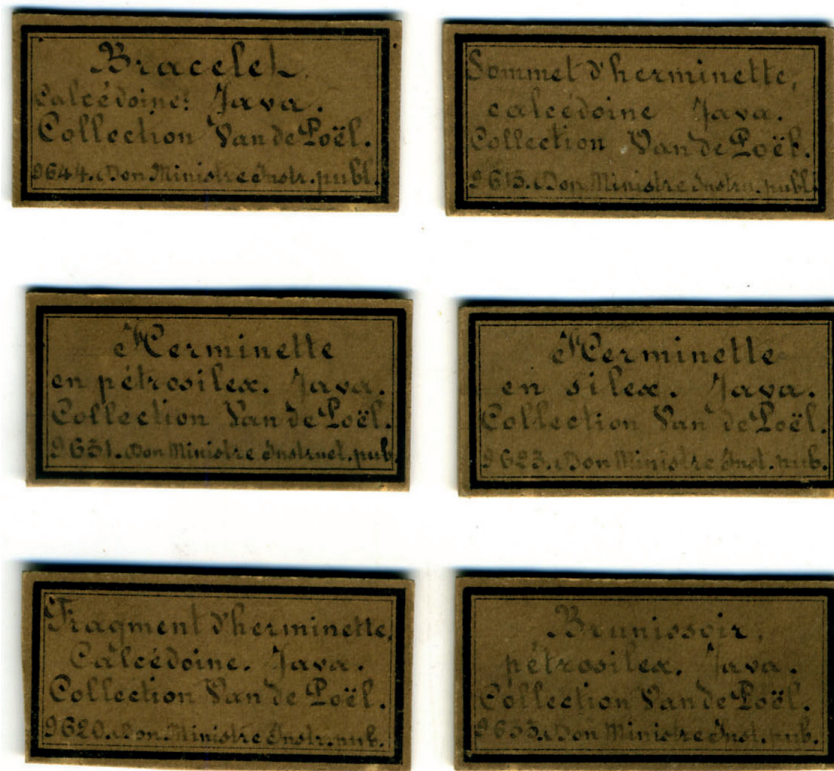 Bracelet.
Calcédoine. Java.
Collection Van de Poël.
9644. Don Ministre Instr. publ.
Sommet d'herminette,
calcédoine Java.
Collection Van de Poël.
9613. Don Ministre Instru. publ.
Herminette
en pétrosilex. Java.
Collection Van de Poël.
9631. Don Ministre Instruct. pub.
Herminette
en silex. Java.
Collection Van de Poël.
9623. Don Ministre Inst. pub.
Fragment d'herminette,
Calcédoine. Java.
Collection Van de Poël.
9620. Don Ministre Instr. pub.
Brunissoir,
pétrosilex. Java.
Collection Van de Poël.
9633. Don Ministre Inst. pub.